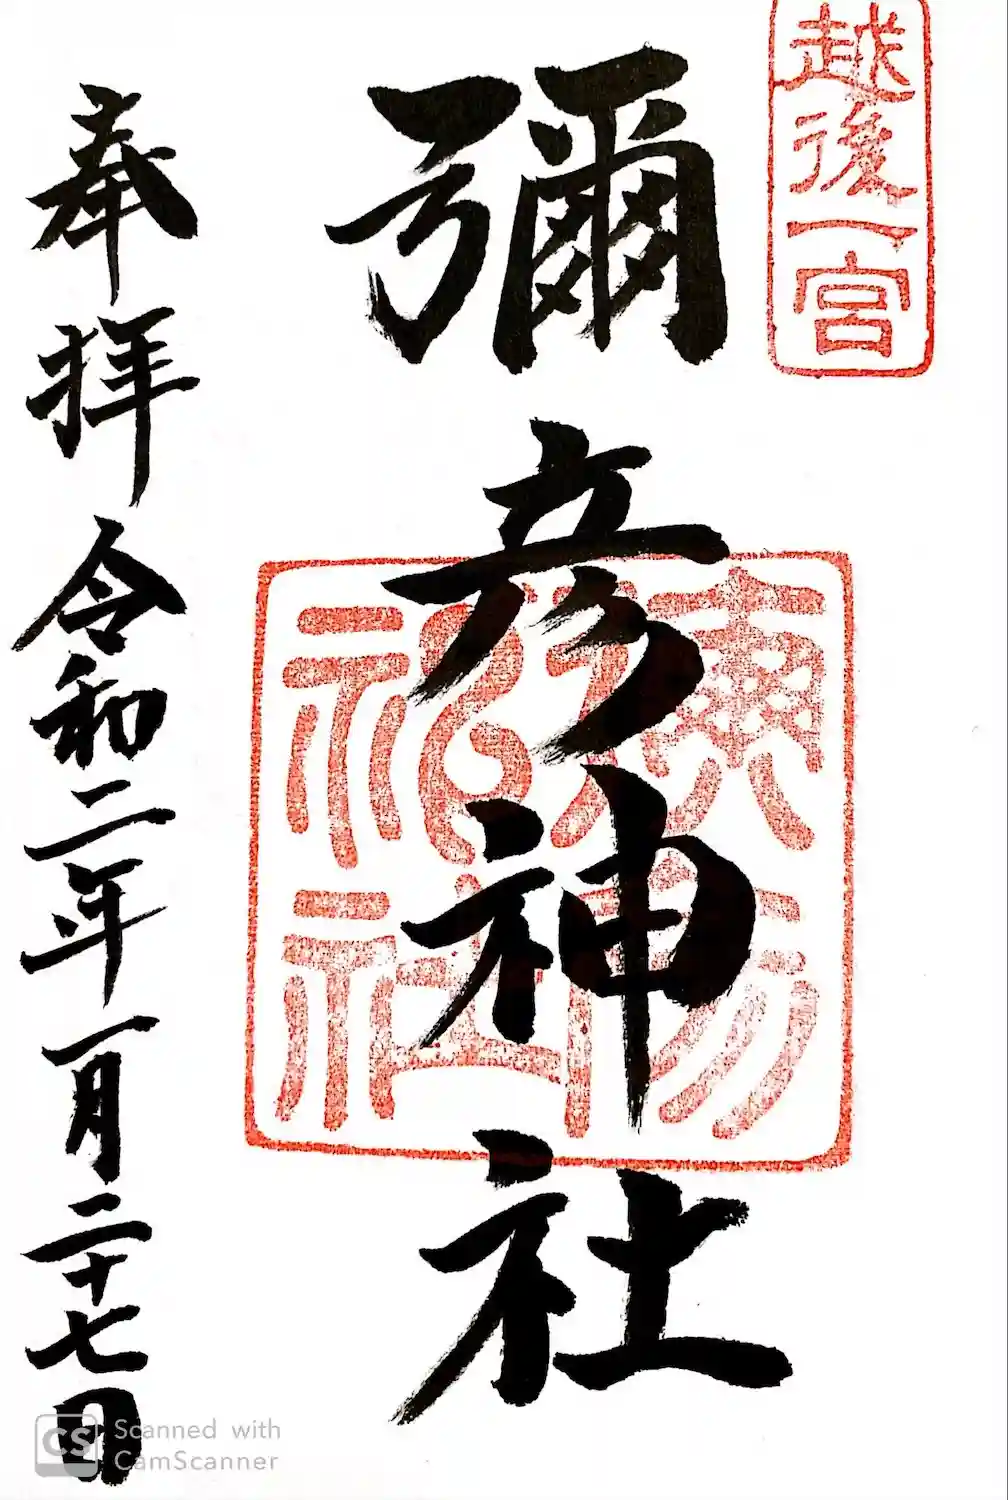 越後一宮
彌彦神社
彌彦神社
奉拝 令和二年一月二十七日
CS Scanned with
CamScanner